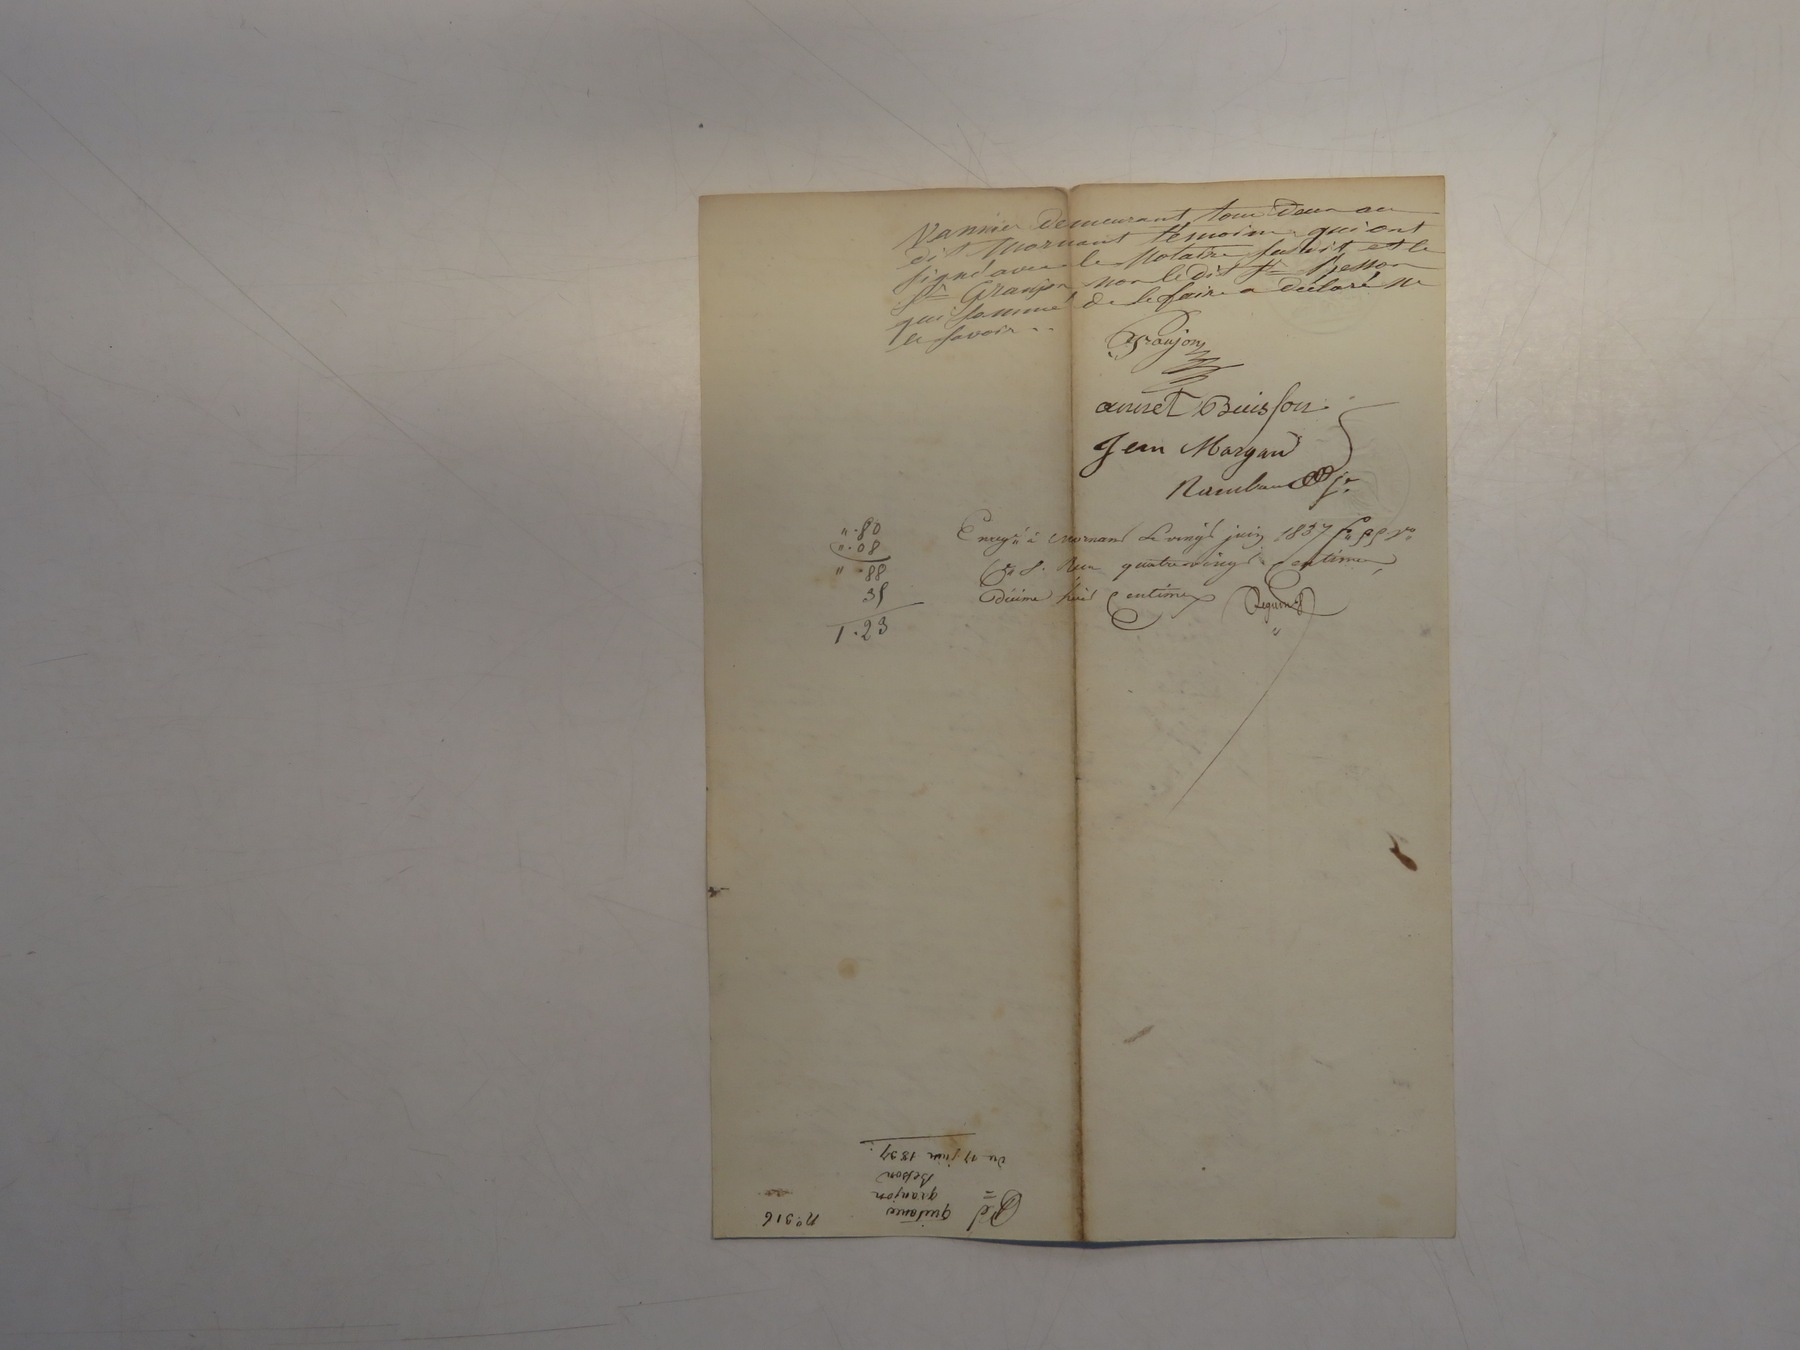 Vannier demeurant tous deux au
dit Mornant témoins qui ont
signé avec le Notaire susdit et le
Sr. Granjon non le dit Sr. Besson
qui sommé de le faire a déclaré ne
le savoir..
Granjon
annet Buisson
Jean Margand
Rambaud
Enreg. à Mornant le vingt juin 1837
quatre vingt Centimes,
Décime huit Centimes
".80
".08
" .88
35
1.23
Nº 316
quitance
granjon
Besson
du 17 juin 1837.